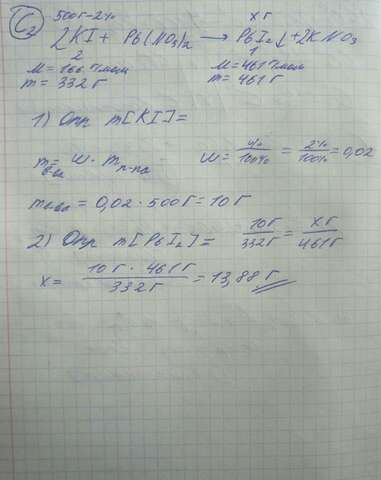 C₂ 500г-2% x г
2KI + Pb(NO₃)₂ → PbI₂↓ + 2KNO₃
2 1
M = 166 г/моль M = 461 г/моль
m = 332 г m = 461 г
1) Опр m[KI] =
m в-ва = ω · m р-ра ω = ω% / 100% = 2% / 100% = 0,02
m в-ва = 0,02 · 500г = 10 г
2) Опр m[PbI₂] = 10г / 332г = xг / 461г
x = 10г · 461г / 332г = 13,88 г